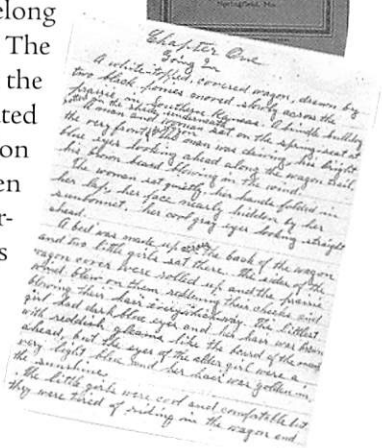 Springfield, Mo.
elong
The
the
ted
on
en
r-
s
Chapter One
Going In
A white-topped, covered wagon, drawn by
two black ponies moved slowly across the
prairie in Southern Kansas. A brindle bulldog
trotted in the shade underneath.
A man and woman sat on the spring-seat at
the very front. The man was driving, his bright
blue eyes looking ahead along the wagon trail,
his brown beard blowing in the wind.
The woman sat quietly, her hands folded in
her lap, her face nearly hidden by her
sunbonnet, her cool gray eyes looking straight
ahead.
A bed was made up across the back of the wagon
and two little girls sat there. The sides of the
wagon cover were rolled up and the prairie
wind blew on them reddening their cheeks and
blowing their hair everywhich way. The littlest
girl had dark blue eyes and her hair was brown
with reddish gleams like the beard of the man
ahead, but the eyes of the older girl were a
very light blue and her hair was golden in
the sunshine.
The little girls were cool and comfortable but
they were tired of riding in the wagon and